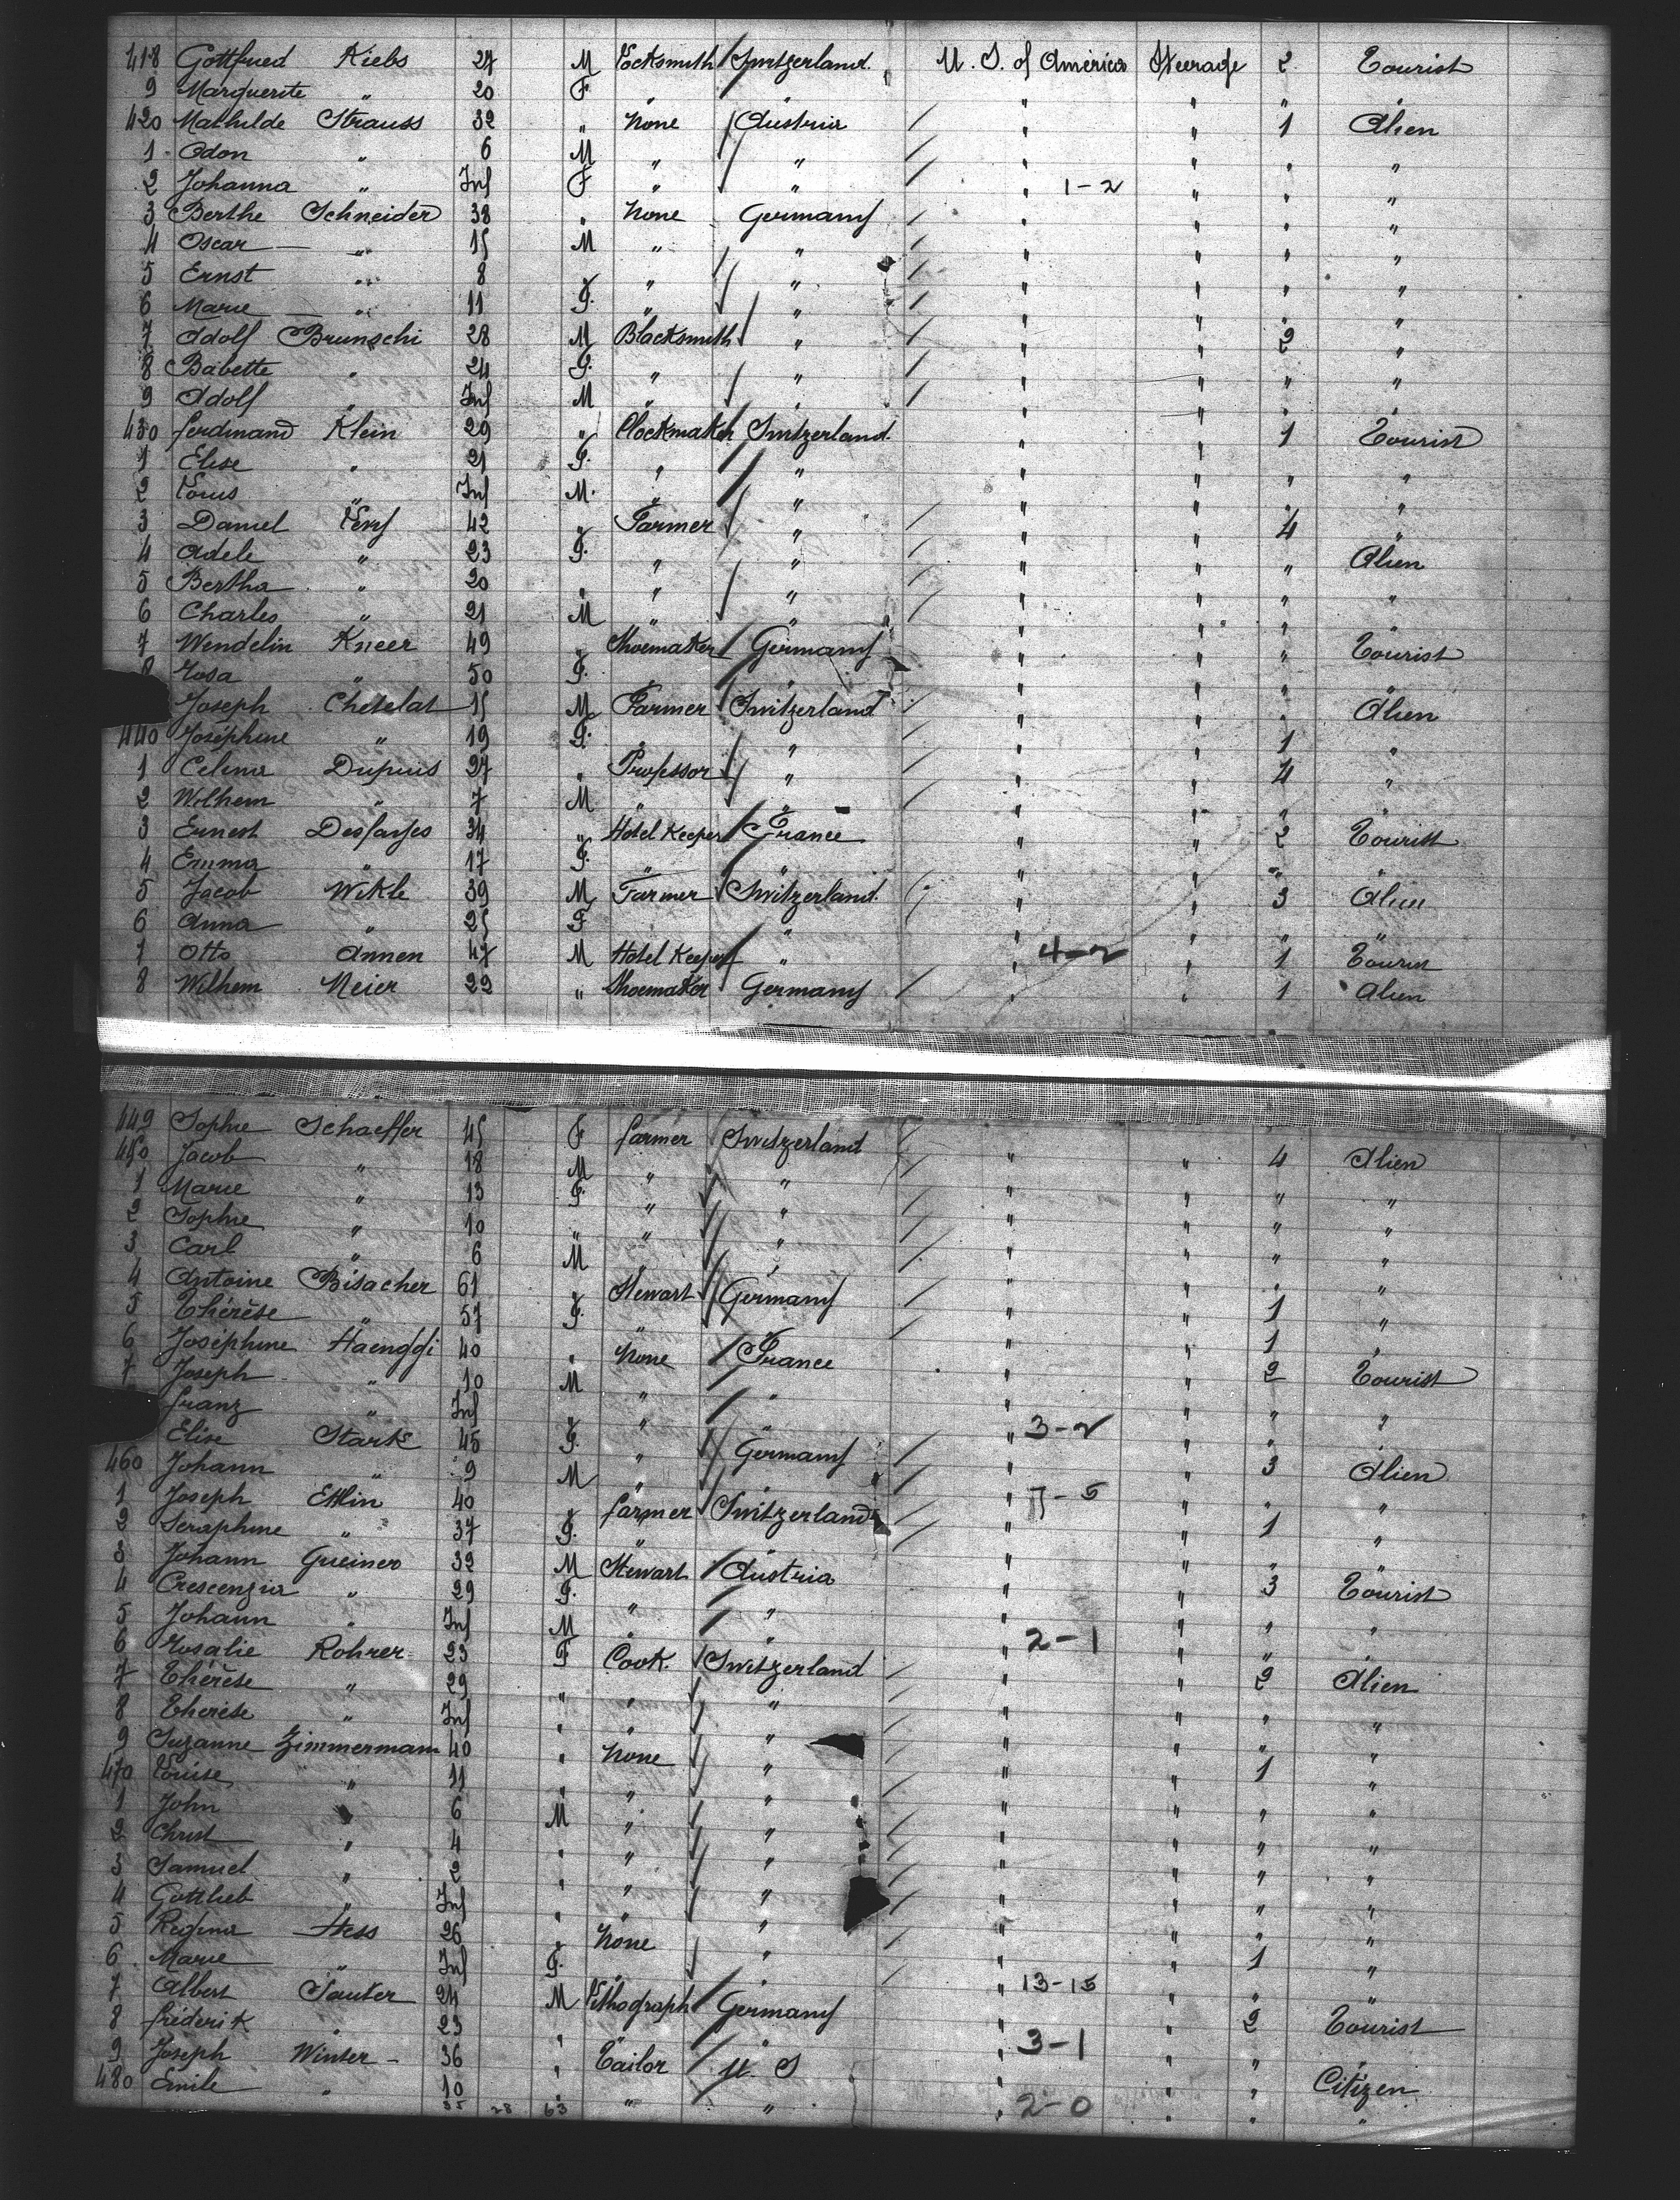 418 Gottfried Kiebs 27 M Locksmith Switzerland. U. S. of America Steerage 2 Tourist
9 Marguerite " 20 F " " " " " "
420 Mathilde Strauss 32 " None Austria " " 1 Alien
1 Odon " 6 M " " " " " "
2 Johanna " Inf F " " " 1-2 " " "
3 Berthe Schneider 38 " None Germany " " " "
4 Oscar " 15 M " " " " " "
5 Ernst " 8 " " " " " " "
6 Marie " 11 F. " " " " " "
7 Adolf Brunschi 28 M Blacksmith " " " 2 "
8 Babette " 24 F. " " " " " "
9 Adolf " Inf M " " " " " "
430 Ferdinand Klein 29 " Clockmaker Switzerland. " " 1 Tourist
1 Elise " 21 F. " " " " " "
2 Louis " Inf M. " " " " " "
3 Daniel Veny 42 " Farmer " " " 4 "
4 Adele " 23 F. " " " " " Alien
5 Bertha " 20 " " " " " " "
6 Charles " 21 M " " " " "
7 Wendelin Kneer 49 " Shoemaker Germany " " " Tourist
8 Rosa " 50 F. " " " " " "
Joseph Chetelat 15 M Farmer Switzerland " " " Alien
440 Josephine " 19 F. " " " " 1 "
1 Celina Dupuis 27 " Professor " " " 4 "
2 Wilhem " 7 M " " " " "
3 Ernest Desfarges 34 " Hotel Keeper France " " 2 Tourist
4 Emma " 17 F. " " " " "
5 Jacob Wikle 39 M Farmer Switzerland. " " 3 Alien
6 Anna " 25 F " " " " " "
7 Otto Annen 47 M Hotel Keeper " " 4-2 " 1 Tourist
8 Wilhem Meier 22 " Shoemaker Germany " " 1 Alien
449 Sophie Schaeffer 45 F farmer Switzerland
450 Jacob " 18 M " " " " 4 Alien
1 Marie " 13 F. " " " " " "
2 Sophie " 10 " " " " " " "
3 Carl " 6 M " " " " " "
4 Antoine Bisacher 61 " Stewart Germany " " " "
5 Thérèse " 57 F. " " " " 1 "
6 Joséphine Haenggi 40 " None France " " 1 "
7 Joseph " 10 M " " " " 2 Tourist
Franz " Inf " " " " 3-2 " " "
Elise Stark 45 F. " Germany " " "
460 Johann " 9 M " " " " 3 Alien
1 Joseph Ettlin 40 " farmer Switzerland " 7-5 " " "
2 Seraphine " 37 F. " " " " 1 "
3 Johann Greiner 32 M Stewart Austria " " "
4 Crescenzia " 29 F. " " " " 3 Tourist
5 Johann " Inf M " " " " " "
6 Rosalie Rohrer 23 F Cook. Switzerland " 2-1 " " "
7 Thérèse " 29 " " " " " 2 Alien
8 Thérèse " Inf " " " " " " "
9 Suzanne Zimmermann 40 " None " " " " "
470 Louise " 11 " " " " " 1 "
1 John " 6 M " " " " " "
2 Christ " 4 " " " " " " "
3 Samuel " 2 " " " " " " "
4 Gottlieb " Inf " " " " " " "
5 Regina Hess 26 " None " " " " "
6 Marie " Inf F. " " " " 1 "
7 Albert Sauter 24 M Lithograph Germany " 13-15 " " "
8 Fréderik " 23 " " " " " 2 Tourist
9 Joseph Winter 36 " Tailor U. S " 3-1 " " "
480 Emile " 10 " " " " " Citizen
35 28 63 " 2-0 " " "